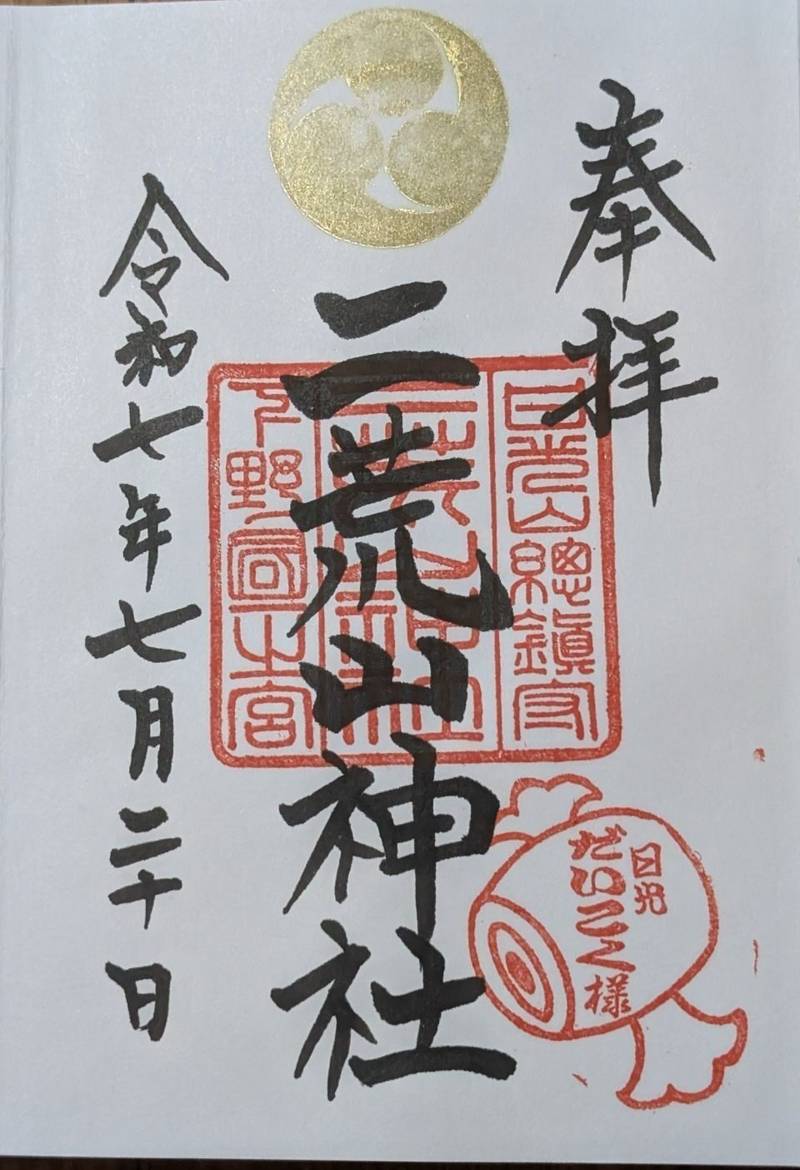 奉拝
日光山總鎮守
二荒山神社
下野國一之宮
二荒山神社
日光
だいこく様
令和七年七月二十日